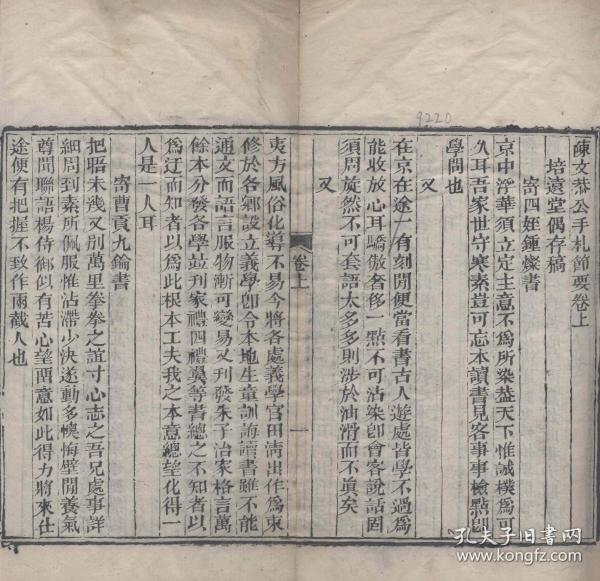 9220
陳文恭公手札節要卷上
培遠堂偶存稿
寄四姪鍾燦書
京中浮華須立定主意不爲所染蓋天下惟誠樸爲可
久耳吾家世守寒素豈可忘本讀書見客事事檢點卽
學問也
又
在京在途一有刻閒便當看書古人遊處皆學不過爲
能收放心耳驕傲奢侈一點不可沾染卽會客說話固
須周旋然不可套語太多多則涉於油滑而不眞矣
又
卷上
一
夷方風俗化導不易今將各處義學官田淸出作爲束
修於各鄕設立義學卽令本地生童訓誨讀書雖不能
通文而語言服物漸可變易又刋發朱子治家格言萬
餘本分發各學並刋家禮四禮翼等書總之不知者以
爲迂而知者以爲此根本工夫我之本意總望化得一
人是一人耳
寄曹貢九錀書
把晤未幾又別萬里拳拳之誼寸心志之吾兄處事詳
細周到素所佩服惟沾滯少決遂動多懊悔壁間養氣
尊聞聯語楊侍御似有苦心望留意如此得力將來仕
途便有把握不致作兩截人也
孔夫子旧书网
www.kongfz.com